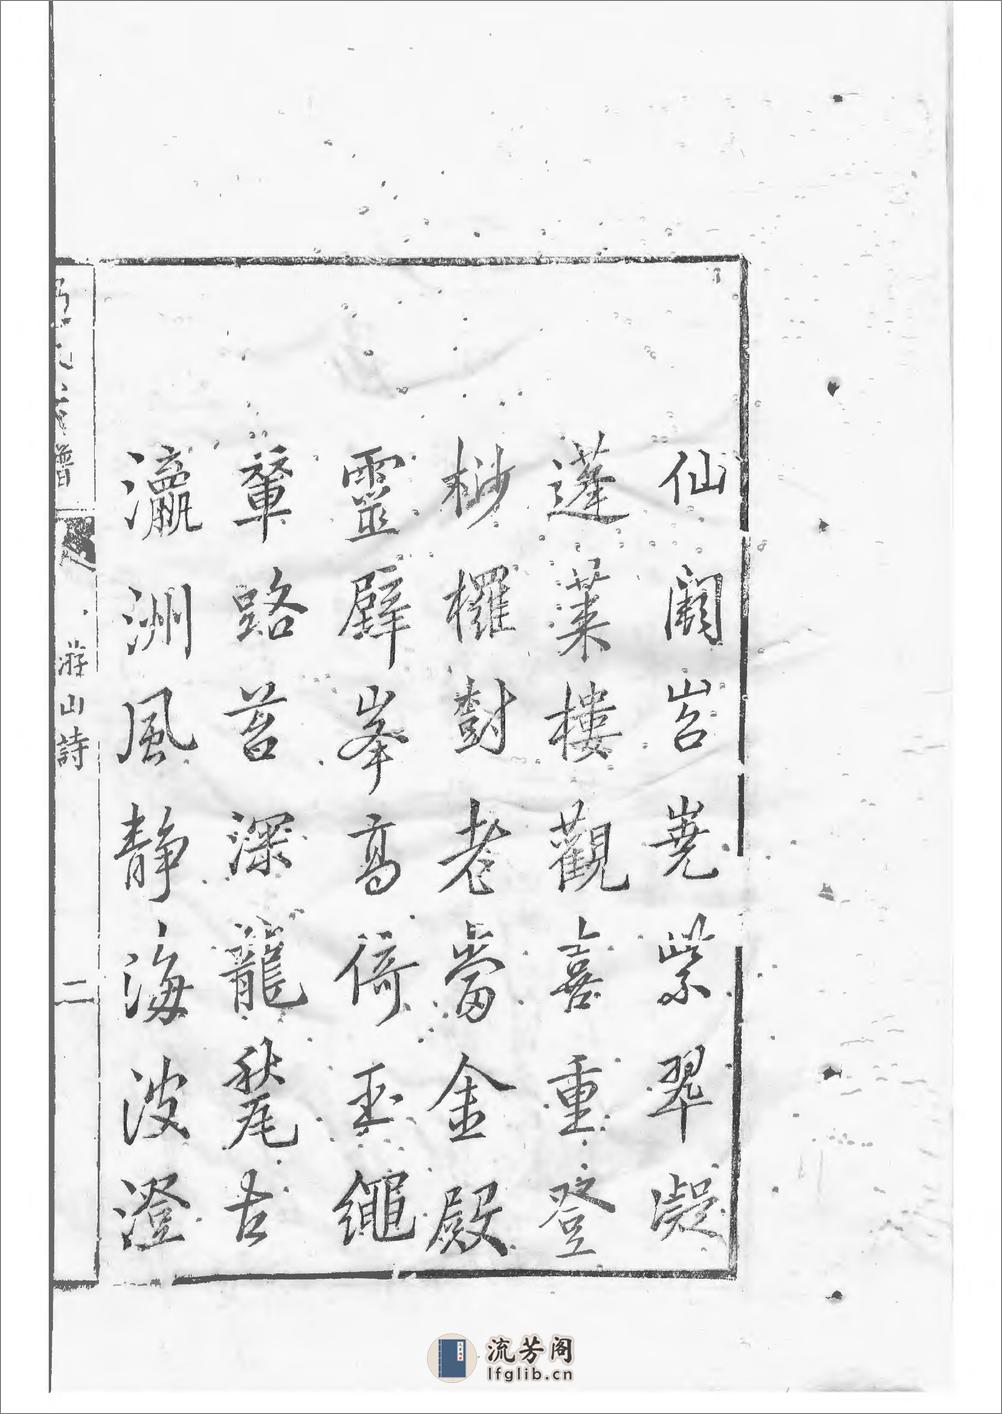 仙闕岧嶤紫翠凝
蓬萊樓觀喜重登
桫欏樹老當金殿
靈壁峯高倚玉繩
輦路苔深龍氅古
瀛洲風静海波澄
譜
游山詩
二
流芳阁
lfglib.cn